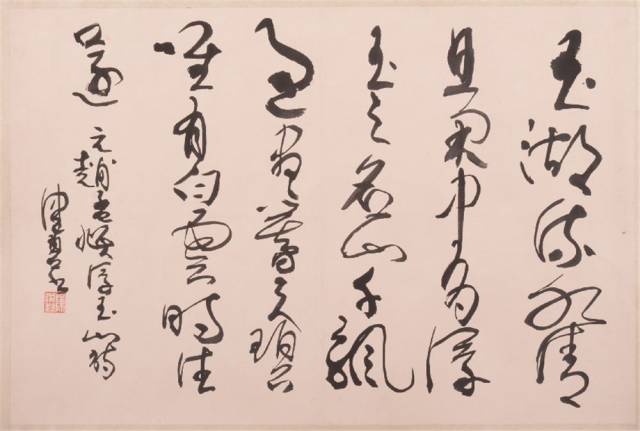 玉湖流水清
且閑中有浮
玉之名山千颿
過盡暮天碧
唯有白雲時往
還
元趙孟頫浮玉山詩